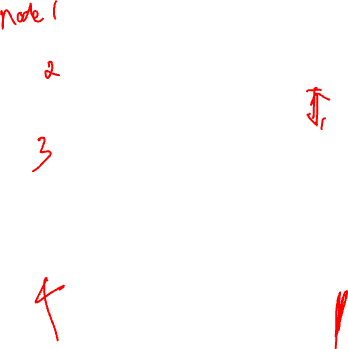 node 1
2
3
4